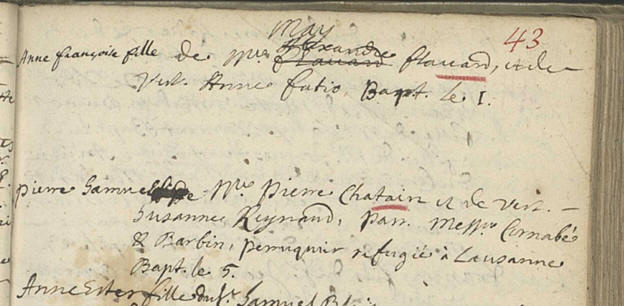 43
May
Anne françoise fille de Mre Alexandre Flavard, et de
Vert. Anne fatio, Bapt. le 1.
pierre Samuel de Mre pierre Chatain et de Vert. –
Susanne Reynaud, parr. Messrs. Cornabé
& Barbin, perruquier refugié à Lausanne
Bapt. le 5.
Anne Ester fille du Sr. Samuel